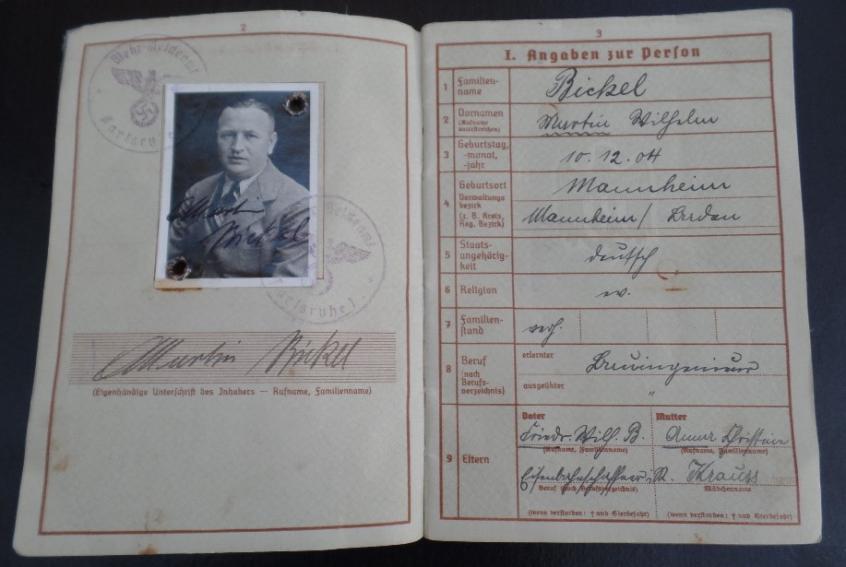 2
Wehr-Meldeamt
Karlsruhe
Martin
Bickel
Meldeamt
Karlsruhe 1
Martin Bickel
(Eigenhändige Unterschrift des Inhabers — Rufname, Familienname)
3
I. Angaben zur Person
1 Familien-
name
Bickel
2 Vornamen
(Rufname
unterstreichen)
Martin Wilhelm
3 Geburtstag,
-monat,
-jahr
10.12.04
4 Geburtsort
Verwaltungs-
bezirk
(z. B. Kreis,
Reg. Bezirk)
Mannheim
Mannheim / Baden
5 Staats-
angehörig-
keit
deutsch
6 Religion
ev.
7 Familien-
stand
verh.
8 Beruf
(nach
Berufs-
verzeichnis)
erlernter
Bauingenieur
ausgeübter
"
9 Eltern
Vater
Friedr. Wilh. B.
(Rufname, Familienname)
Eisenbahnschaffner
Beruf (nach Berufsverzeichnis)
(wenn verstorben: † und Sterbejahr)
Mutter
Anna Christine
(Rufname, Familienname)
Krauss
Mädchenname
(wenn verstorben: † und Sterbejahr)